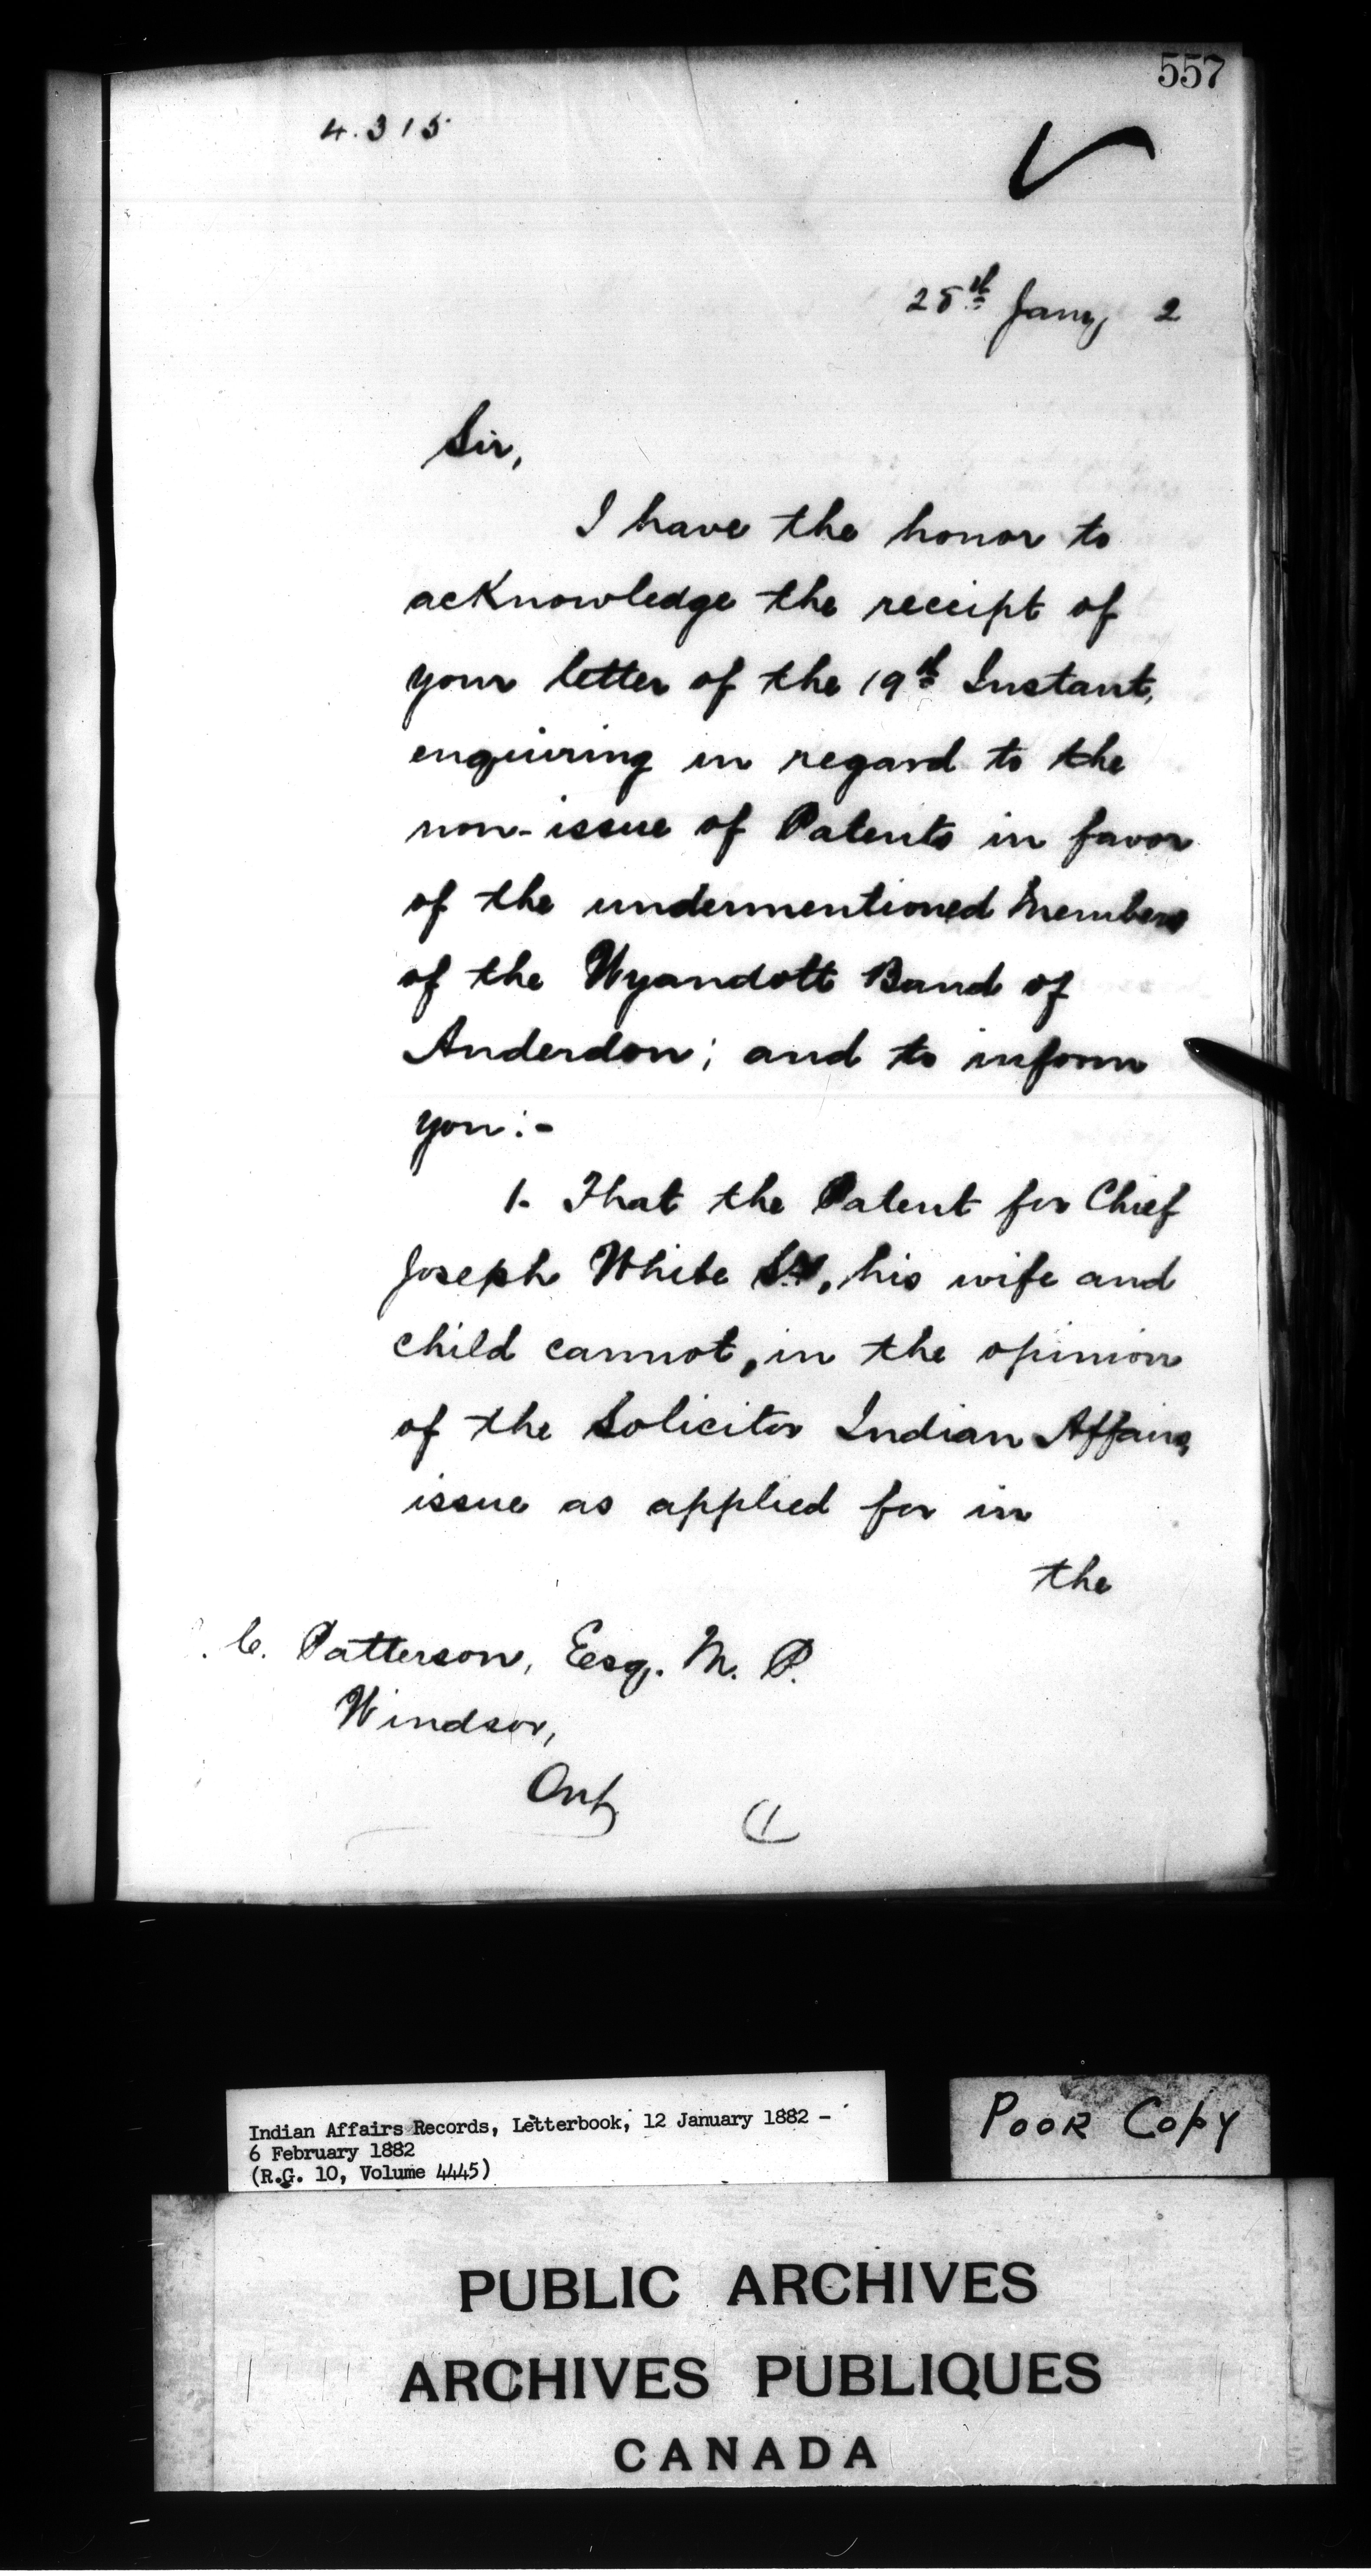 557
4.315
28th Jany 2
Sir,
I have the honor to
acknowledge the receipt of
your letter of the 19th Instant,
enquiring in regard to the
non-issue of Patents in favor
of the undermentioned Members
of the Wyandott Band of
Anderdon; and to inform
you:-
1. That the Patent for Chief
Joseph White Sr, his wife and
child cannot, in the opinion
of the Solicitor Indian Affairs,
issue as applied for in
the
C. Patterson, Esq. M. P.
Windsor,
Ont
Indian Affairs Records, Letterbook, 12 January 1882 -
6 February 1882
(R.G. 10, Volume 4445)
POOR COPY
PUBLIC ARCHIVES
ARCHIVES PUBLIQUES
CANADA